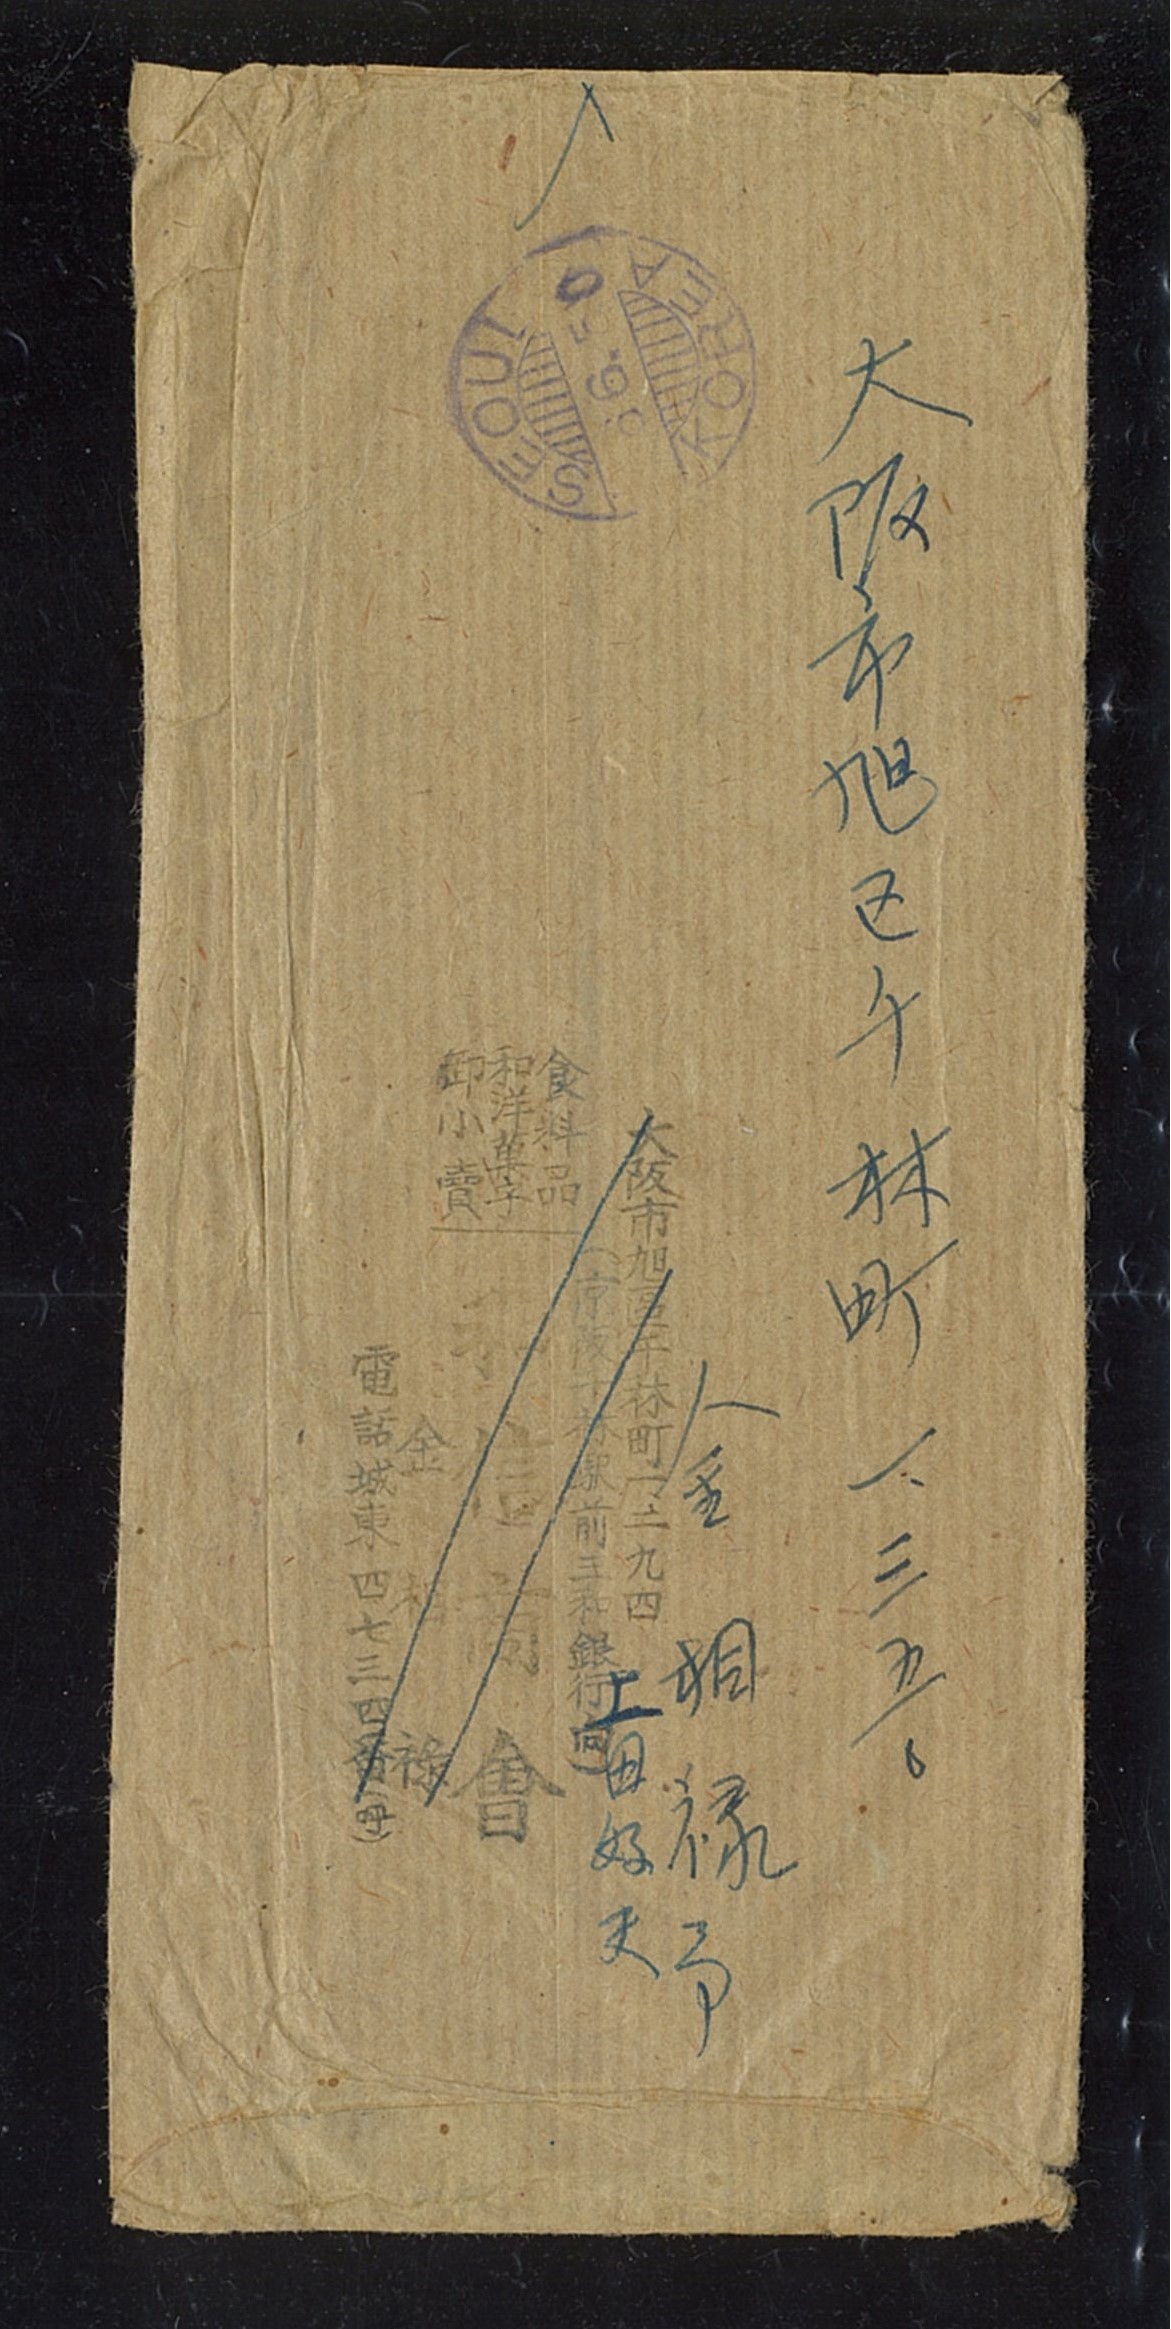 SEOUL
KOREA
大阪市旭区千林町一、三九四
大阪市旭區千林町一三九四
(京阪千林駅前三和銀行向)
食料品
和洋菓子
卸小賣
商會
金相祿
電話城東四七三四番(呼)
金相禄
上田好夫